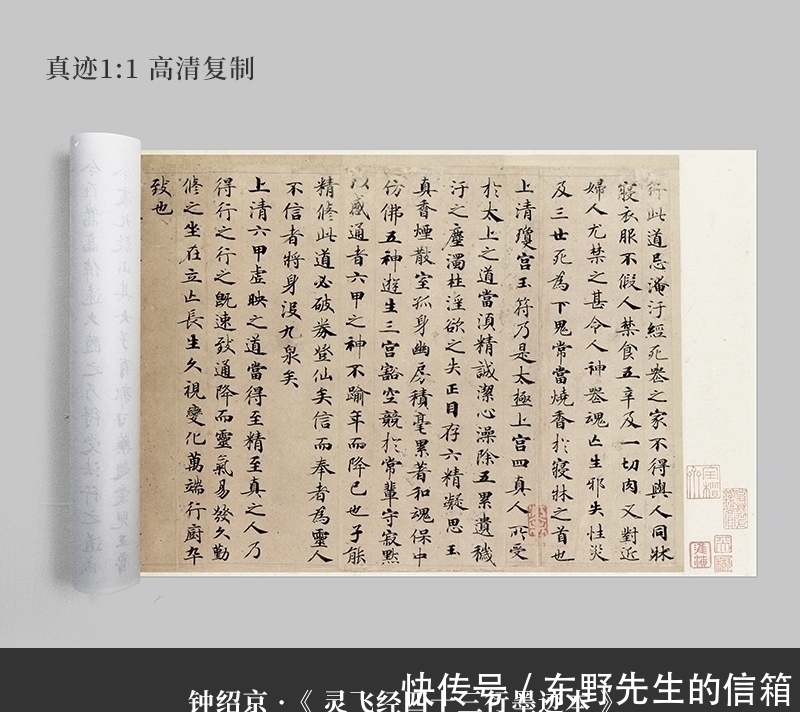 真迹1:1 高清复制
行此道忌潘汙經死丧之家不得與人同牀
寢衣服不假人禁食五辛及一切肉又對近
婦人尤禁之甚令人神丧魂亡生邪失性災
及三世死為下鬼常當燒香於寢牀之首也
上清瓊宮玉符乃是太極上宮四真人所受
於太上之道當湏精誠潔心澡除五累遺穢
汙之塵濁杜淫欲之失正目存六精凝思玉
真香煙散室孤身幽房積毫累著和魂保中
仿佛五神遊生三宮豁空競於常輩守寂默
以感通者六甲之神不踰年而降已也子能
精修此道必破券登仙矣信而奉者為靈人
不信者將身沒九泉矣
上清六甲虛映之道當得至精至真之人乃
得行之行之既速致通降而靈氣易發久勤
修之坐在立亡長生久視變化萬端行廚卒
致也
钟绍京·《 灵飞经四十三行墨迹本 》
快传号 / 东野先生的信箱